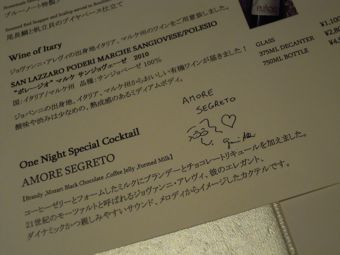 尾長鯛と帆立貝のブイヤベース仕立て
Wine of Itary
ジョヴァンニ・アレヴィの出身地イタリア、マルケ州のワインをご用意致しました。
SAN LAZZARO PODERI MARCHE SANGIOVESE/POLESIO
"ポレージオ" マルケ サンジョヴェーゼ 2010
国:イタリア/マルケ州 品種:サンジョベーゼ 100%
ジョバンニの出身地、イタリア、マルケ州からおいしい有機ワインが届きました!
酸味や渋みは少なめの、熟成感のあるミディアムボディ。
GLASS
375ML DECANTER
750ML BOTTLE
AMORE
SEGRETO
One Night Special Cocktail
AMORE SEGRETO
【Brandy ,Mozart Black Chocolate ,Coffee Jelly ,Formed Milk】
コーヒーゼリーとフォームしたミルクにブランデーとチョコレートリキュールを加えました。
21世紀のモーツァルトと呼ばれるジョヴァンニ・アレヴィ、彼のエレガント、
ダイナミックかつ親しみやすいサウンド、メロディからイメージしたカクテルです。